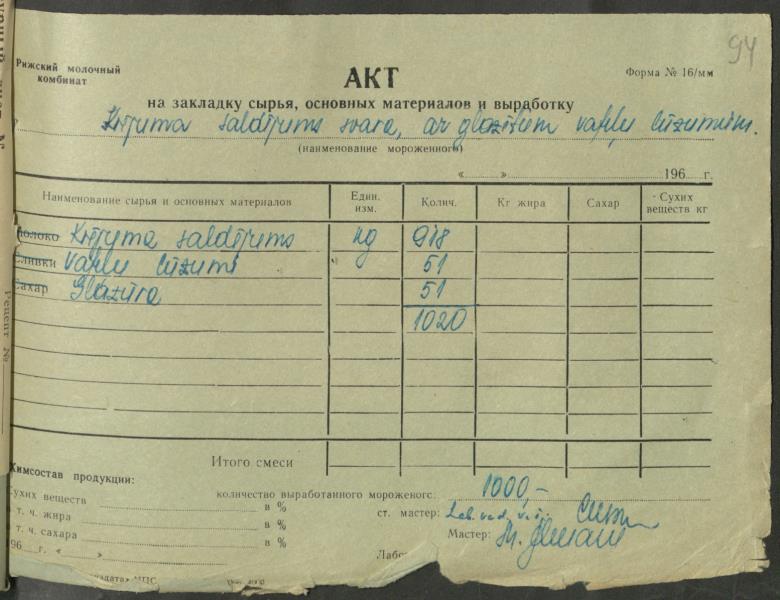 94
Рижский молочный
комбинат
АКТ
Форма № 16/мм
на закладку сырья, основных материалов и выработку
Krējuma saldējums svara, ar glazētiem vafeļu lūzumiem.
(наименование мороженого)
« » 196 г.
Наименование сырья и основных материалов Един. изм. Колич. Кг жира Сахар Сухих веществ кг
молоко Krējuma saldējums kg 918
Сливки vafeļu lūzumi 51
Сахар Glazūra 51
1020
Итого смеси
Химсостав продукции:
Сухих веществ в %
количество выработанного мороженого: 1000,-
т. ч. жира в %
ст. мастер: Lab. vad. v. i.
т. ч. сахара в %
Мастер:
96 г. « »
Рецепт №